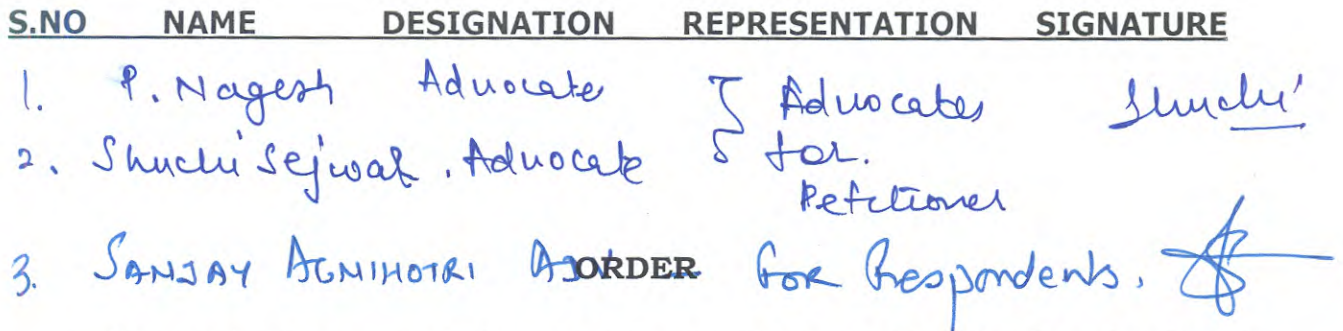 S.NO NAME DESIGNATION REPRESENTATION SIGNATURE
1. P. Nagesh Advocate } Advocates Shuchi
2. Shuchi Sejwal, Advocate for.
Petitioner
3. SANJAY AGNIHOTRI ORDER FOR Respondents.